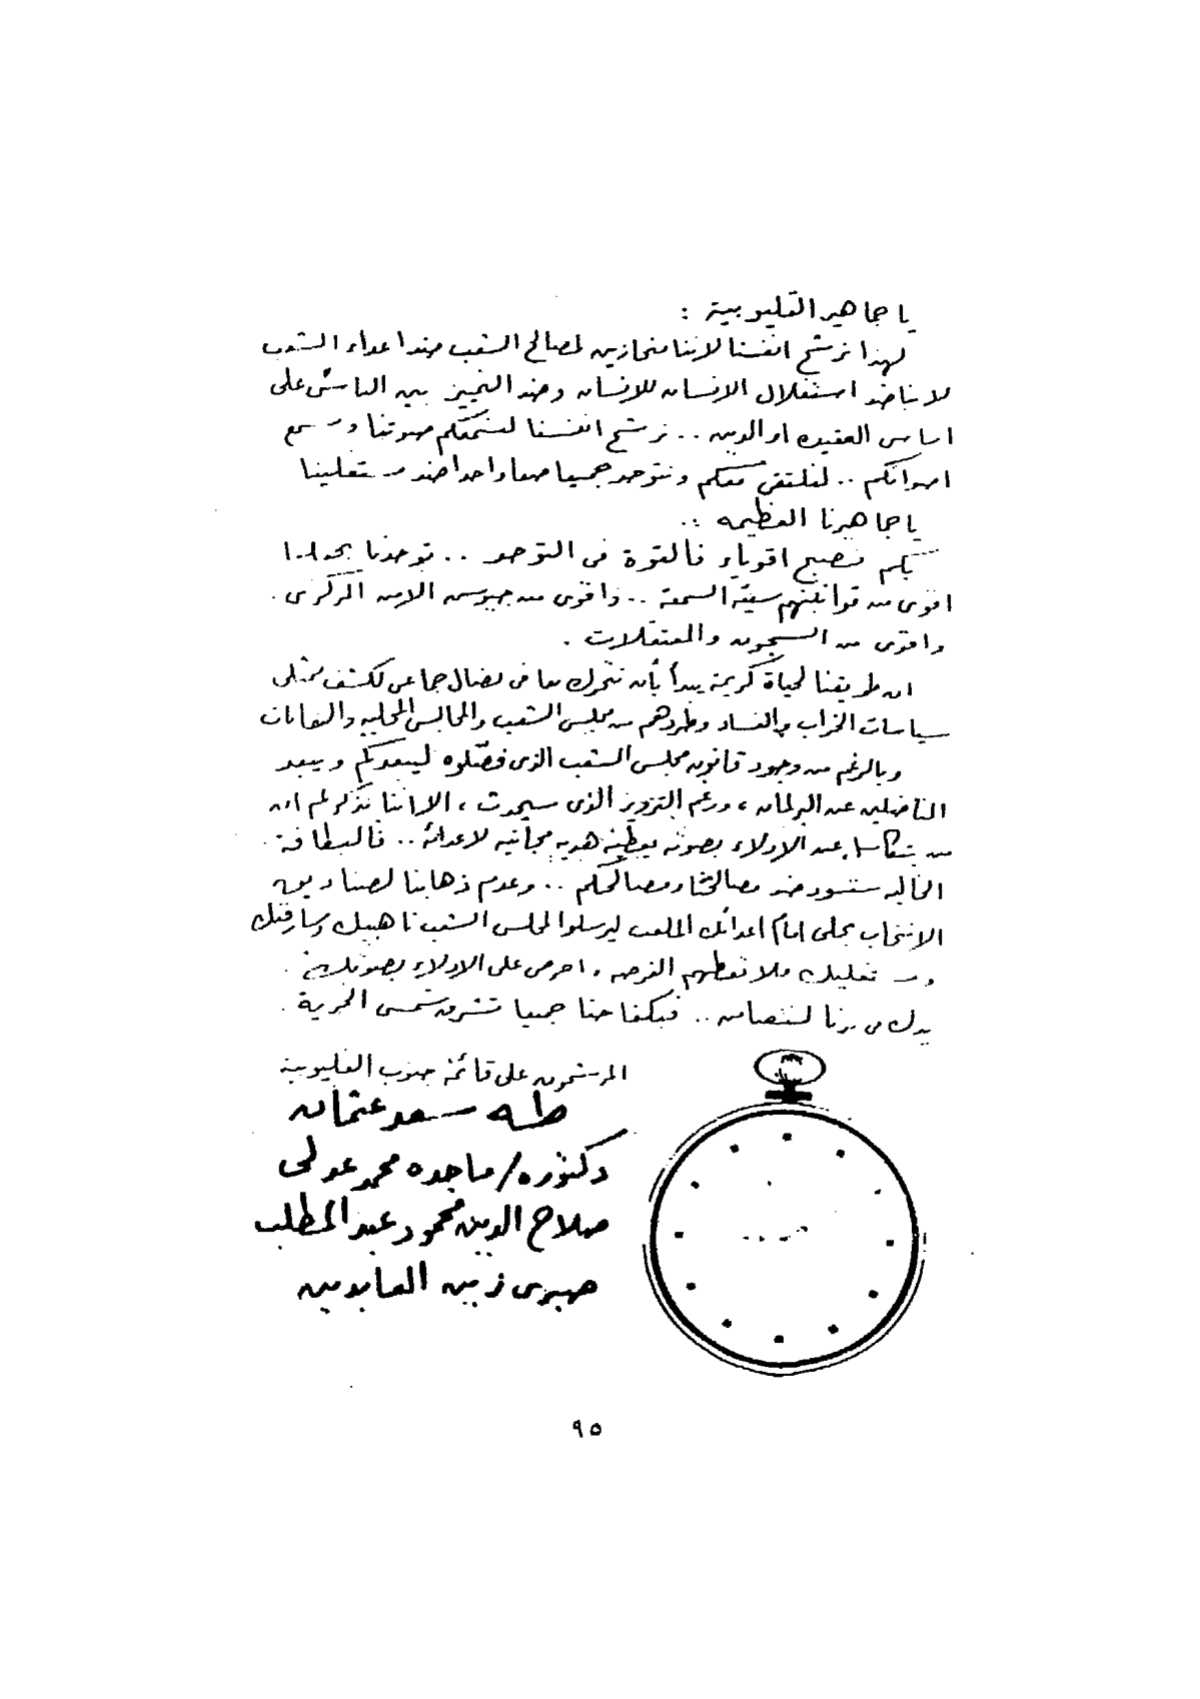 يا جماهير القليوبية :
لهذا نرشح انفسنا لاننا منحازين لمصالح الشعب ضد اعداء الشعب
لاننا ضد استغلال الانسان للانسان وضد التمييز بين الناس على
اساس العقيده او الدين .. نرشح انفسنا لنسمعكم صوتنا ونسمع
اصواتكم .. لنلتقى معكم ونتوحد جميعا صفا واحدا ضد مستغلينا
يا جماهيرنا العظيمه :.
بكم نصبح اقوياء فالقوة فى التوحد .. توحدنا يجعلنا
اقوى من قوانينهم سيئة السمعة .. واقوى من جيوش الامن المركزى .
واقوى من السجون والمعتقلات .
ان طريقنا لحياة كريمة يبدأ بأن نتحرك معا فى نضال جماعى لكشف ممثلى
سياسات الخراب والفساد وطردهم من مجلس الشعب والمجالس المحليه والنقابات
وبالرغم من وجود قانون مجلس الشعب الذى فصّلوه ليبعدكم ويبعد
المناضلين عن البرلمان ، ورغم التزوير الذى سيحدث ، الا اننا نذكركم ان
من يتكاسل عن الادلاء بصوته يعطيه هديه مجانيه لاعدائه .. فالبطاقة
الخاليه ستسود ضد مصالحنا ومصالحكم .. وعدم ذهابنا لصناديق
الانتخاب يخلى امام اعدائك الملعب ليرسلوا لمجلس الشعب ناهبيك وسارقيك
ومستغليك فلا تعطهم الفرصه واحرص على الادلاء بصوتك .
يدك فى يدنا لنتضامن .. فبكفاحنا جميعا تشرق شمس الحرية .
المرشحون على قائمة جنوب القليوبية
طه سعد عثمان
دكتوره / ماجده محمد عدلى
صلاح الدين محمود عبد المطلب
صبرى زين العابدين
٩٥